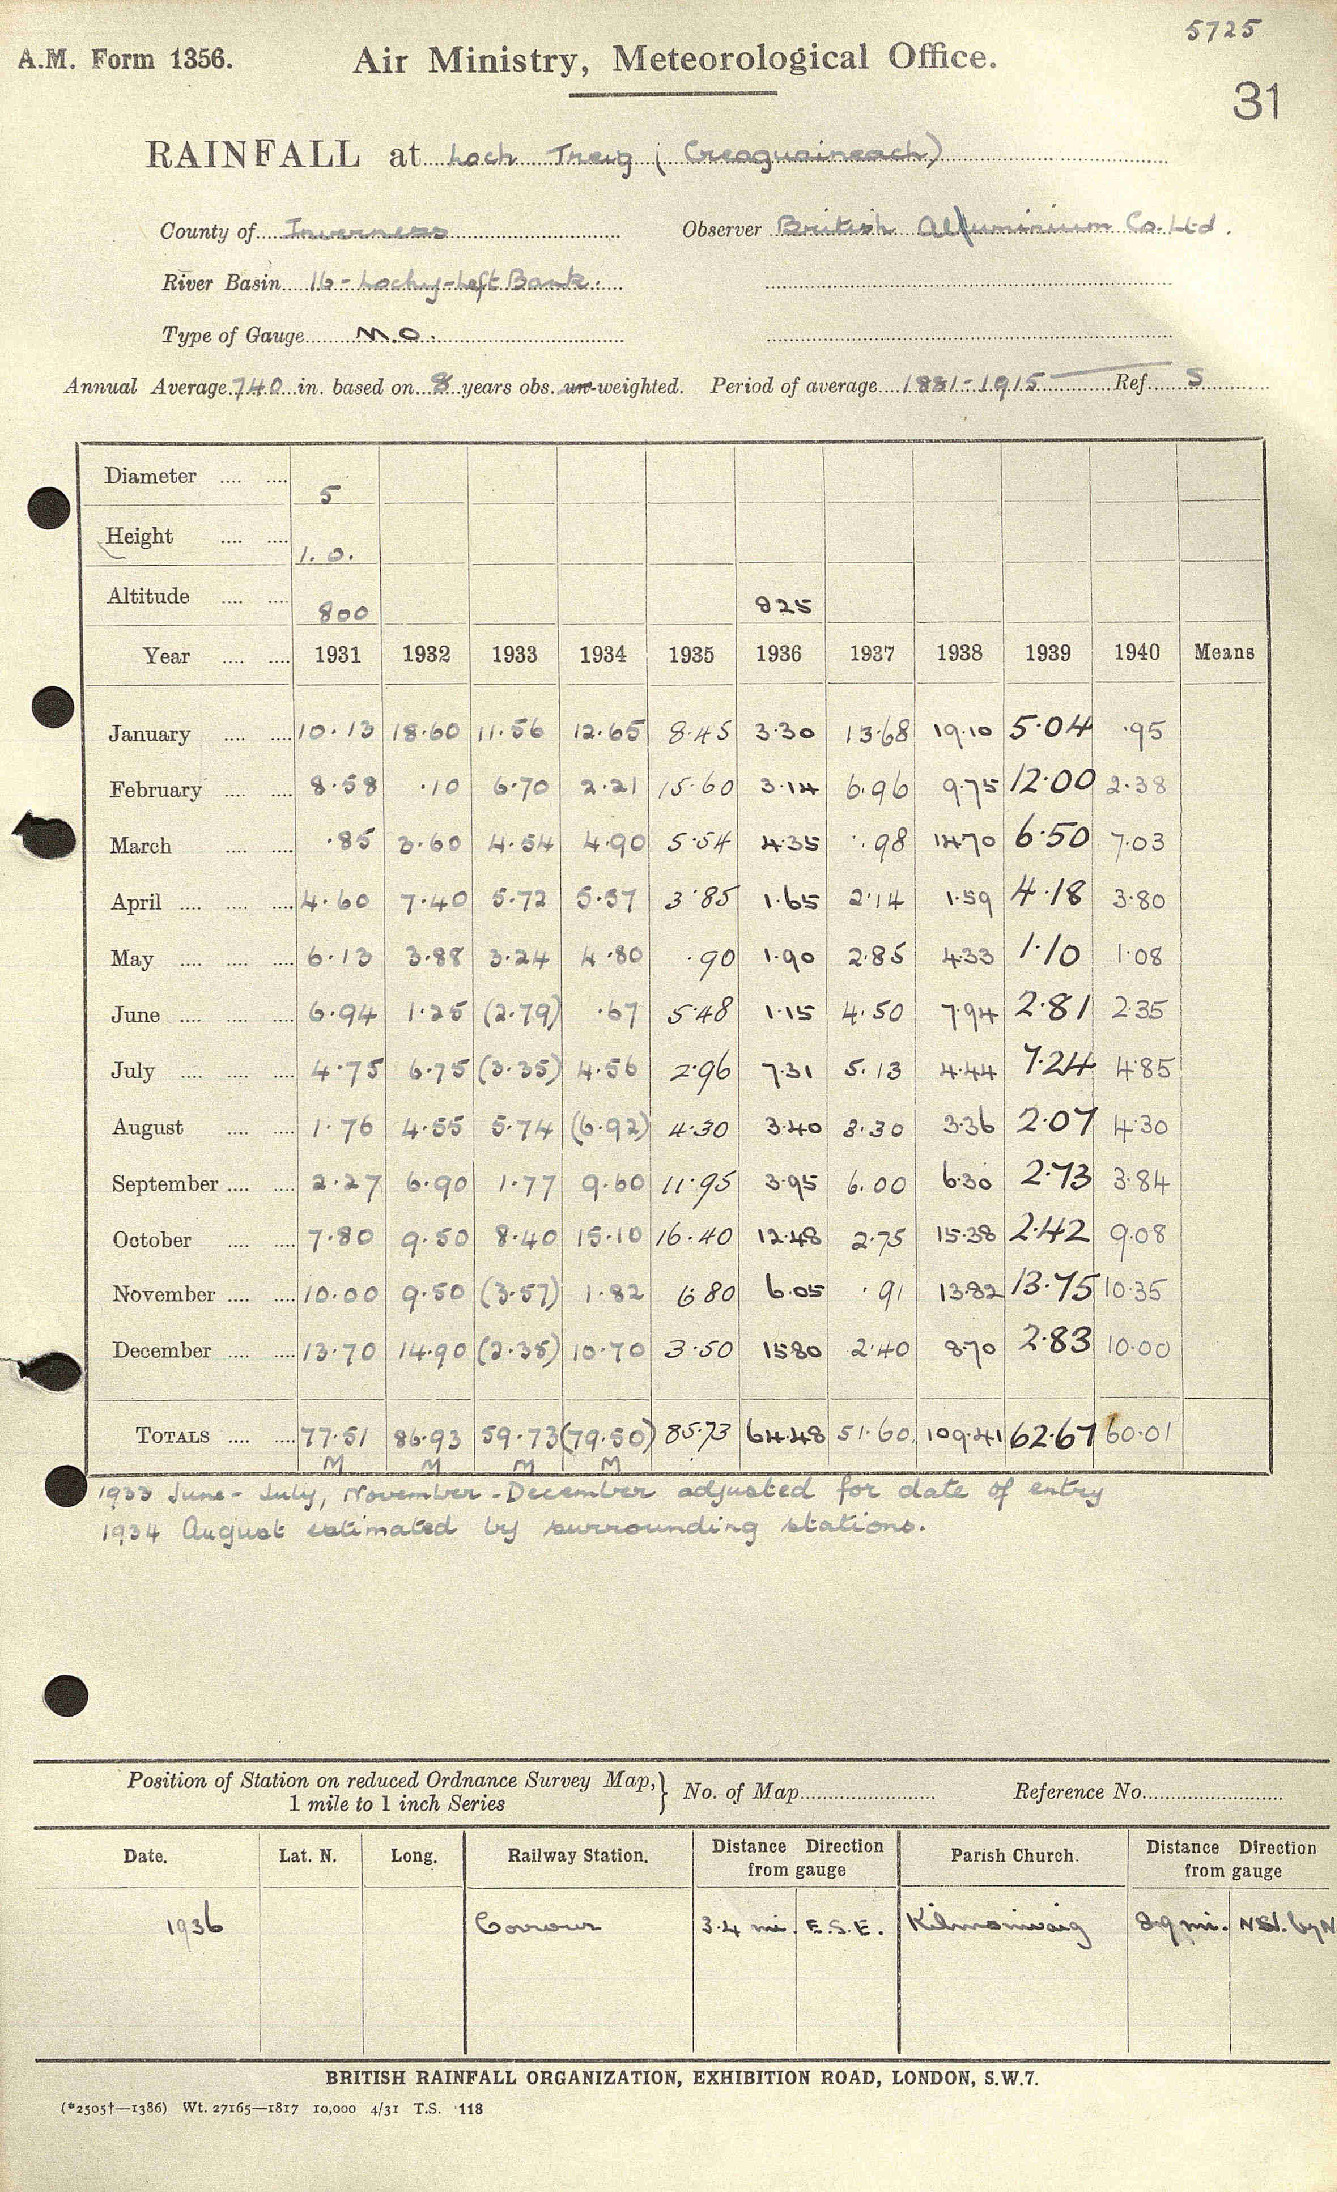 5725
A.M. Form 1356. Air Ministry, Meteorological Office.
31
RAINFALL at Loch Treig (Creaguaineach)
County of Inverness Observer British Aluminium Co. Ltd.
River Basin 16 - Lochy - Left Bank.
Type of Gauge M.O.
Annual Average 74.0 in. based on 8 years obs. un-weighted. Period of average 1881-1915 Ref S
Diameter .... .... 5
Height .... .... 1. 0.
Altitude .... .... 800 825
Year .... .... 1931 1932 1933 1934 1935 1936 1937 1938 1939 1940 Means
January .... .... 10.13 18.60 11.56 12.65 8.45 3.30 13.68 19.10 5.04 .95
February .... .... 8.58 .10 6.70 2.21 15.60 3.14 6.96 9.75 12.00 2.38
March .... .... .85 3.60 4.54 4.90 5.54 4.35 .98 14.70 6.50 7.03
April .... .... .... 4.60 7.40 5.72 5.57 3.85 1.65 2.14 1.59 4.18 3.80
May .... .... .... 6.13 3.88 3.24 4.80 .90 1.90 2.85 4.33 1.10 1.08
June .... .... .... 6.94 1.25 (2.79) .67 5.48 1.15 4.50 7.94 2.81 2.35
July .... .... .... 4.75 6.75 (3.35) 4.56 2.96 7.31 5.13 4.44 7.24 4.85
August .... .... 1.76 4.55 5.74 (6.92) 4.30 3.40 3.30 3.36 2.07 4.30
September .... .... 2.27 6.90 1.77 9.60 11.95 3.95 6.00 6.30 2.73 3.84
October .... .... 7.80 9.50 8.40 15.10 16.40 12.48 2.75 15.38 2.42 9.08
November .... .... 10.00 9.50 (3.57) 1.82 6.80 6.05 .91 13.82 13.75 10.35
December .... .... 13.70 14.90 (2.35) 10.70 3.50 15.80 2.40 8.70 2.83 10.00
TOTALS .... .... 77.51 86.93 59.73 (79.50) 85.73 64.48 51.60 109.41 62.67 60.01
M M M M
1933 June - July, November - December adjusted for date of entry
1934 August estimated by surrounding stations.
Position of Station on reduced Ordnance Survey Map, } No. of Map Reference No.
1 mile to 1 inch Series
Date. Lat. N. Long. Railway Station. Distance Direction from gauge Parish Church. Distance Direction from gauge
1936 Corrour 3.4 mi. E.S.E. Kilmonivaig 8.9 mi. by N
BRITISH RAINFALL ORGANIZATION, EXHIBITION ROAD, LONDON, S.W.7.
(*2505†—1386) Wt. 27165—1817 10,000 4/31 T.S. 118